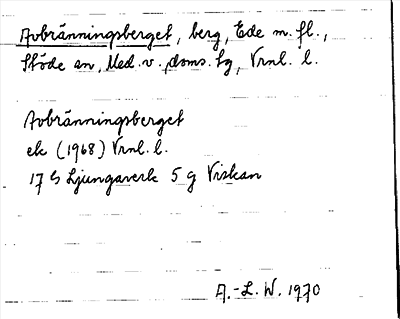 Avbränningsberget, berg, Ede m. fl.,
Stöde sn, Med. v., doms. tg, Vrnl. l.
Avbränningsberget
ek (1968) Vrnl. l.
17 G Ljungaverk 5 g Viskan
A.-L. W. 1970